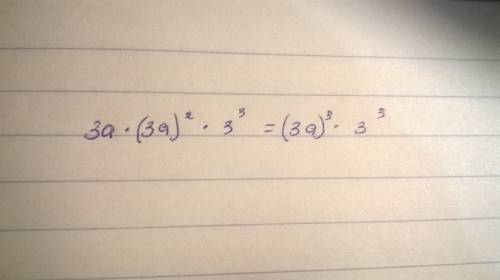 3a · (3a)² · 3³ = (3a)³ · 3³